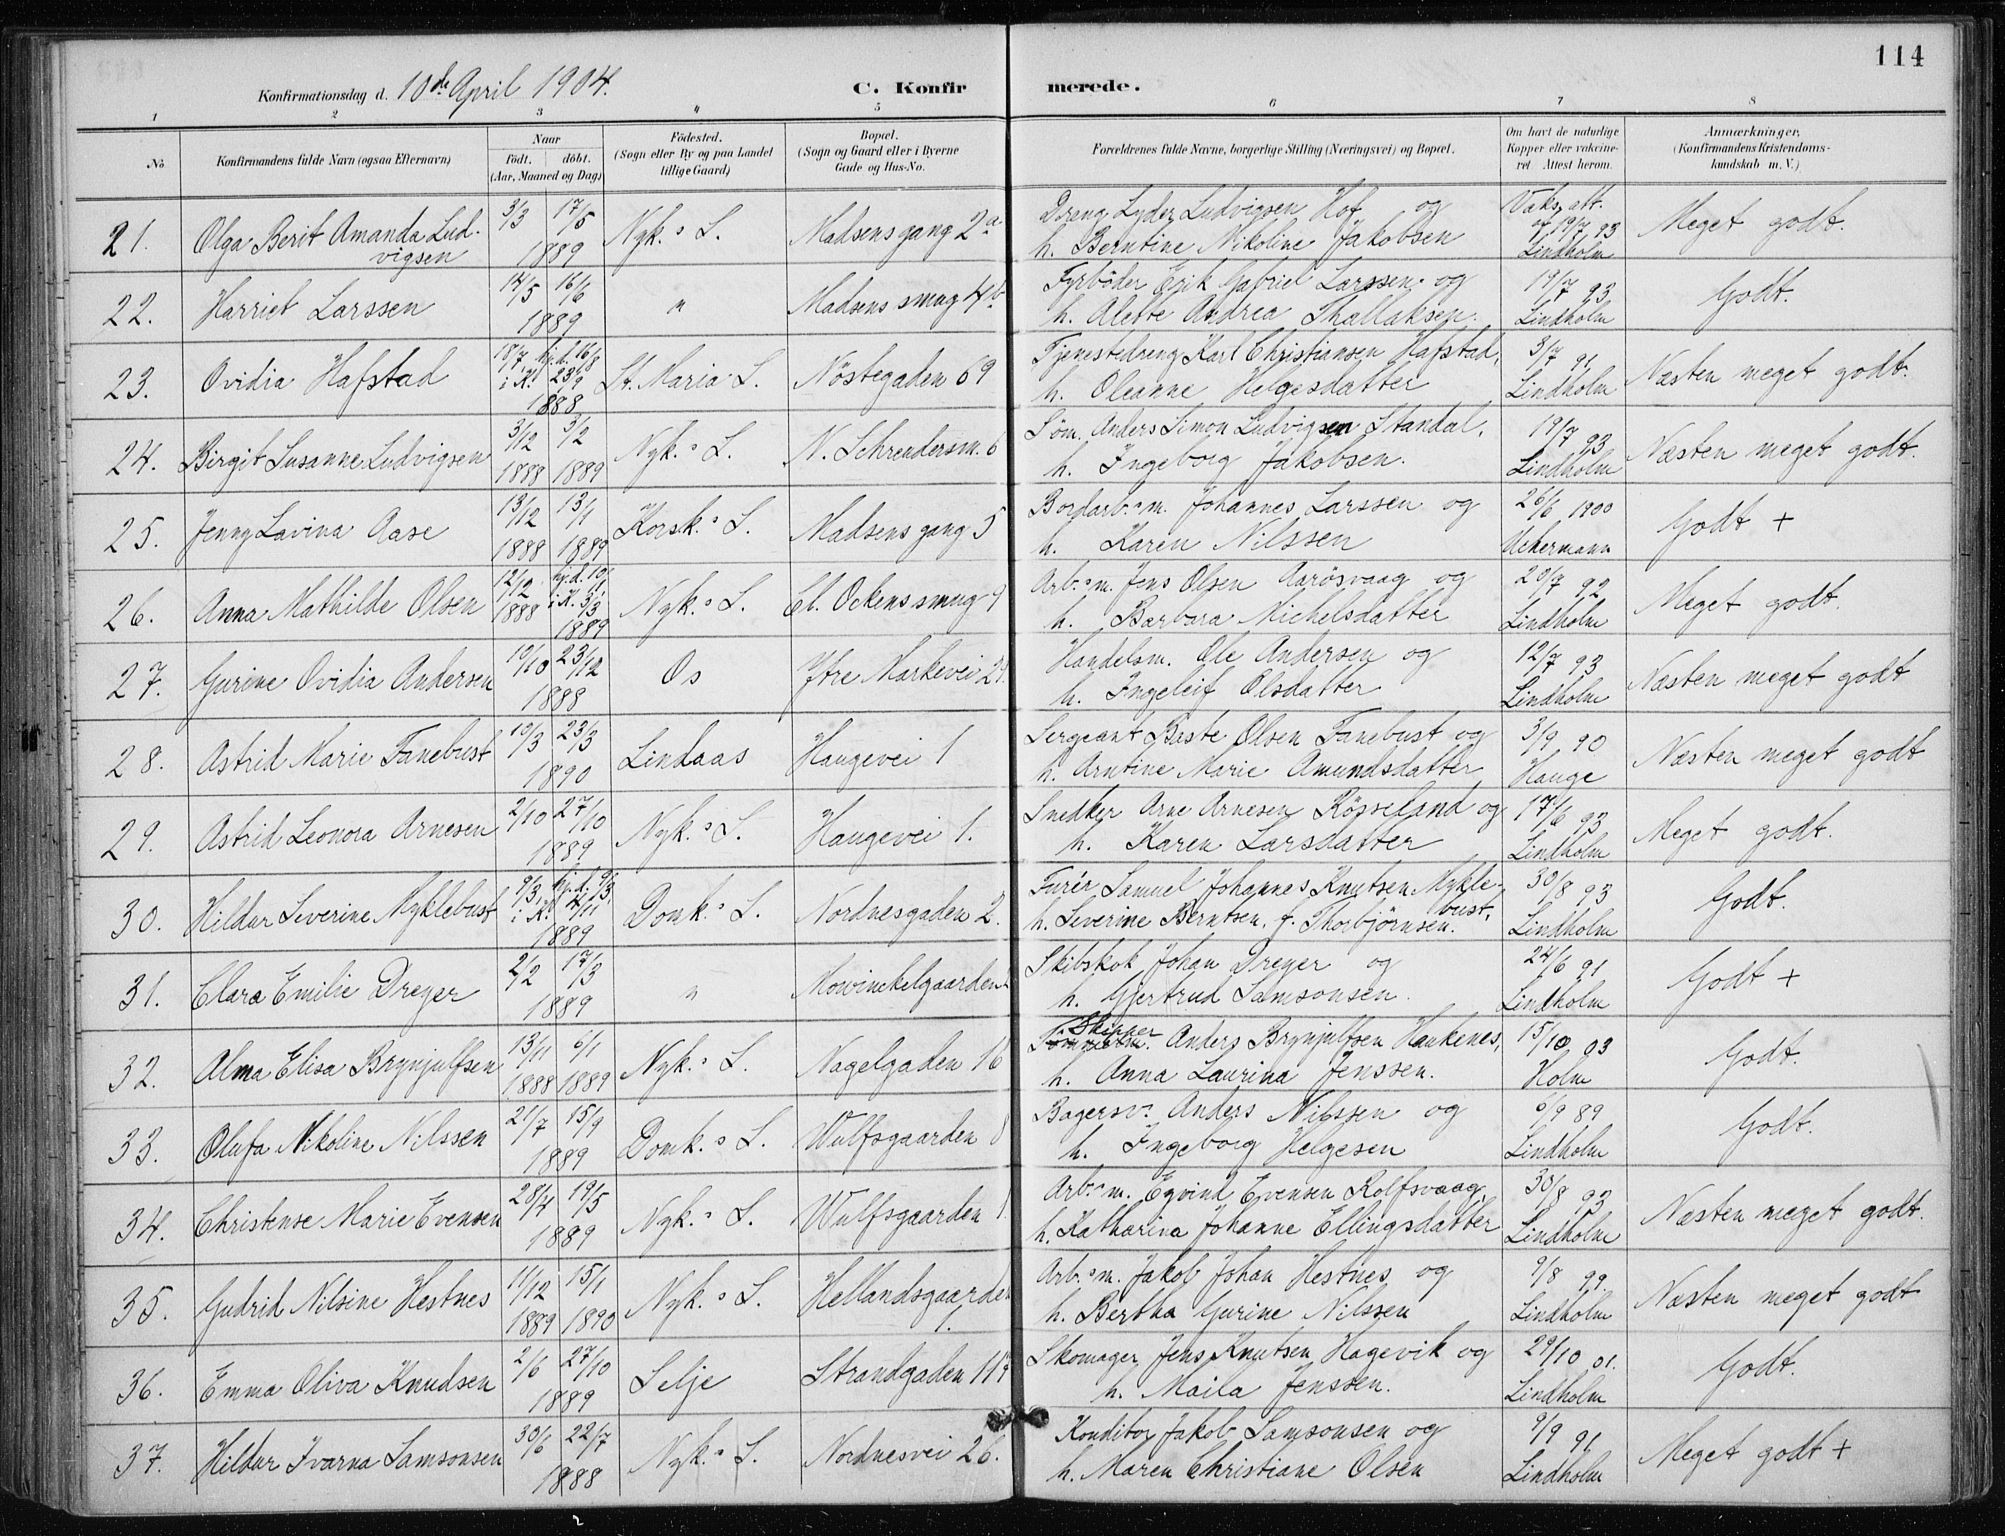 114
Konfirmationsdag d. 10de April 1904. C. Konfirmerede.
1 2 3 4 5 6 7 8
No
Konfirmandens fulde Navn (ogsaa Efternavn)
Naar født. døbt. (Aar, Maaned og Dag)
Fødested. (Sogn eller By og paa Landet tillige Gaard)
Bopæl. (Sogn og Gaard eller i Byerne Gade og Hus-No.
Forældrenes fulde Navne, borgerlige Stilling (Næringsvei) og Bopæl.
Om havt de naturlige Kopper eller vakcineret Attest herom.
Anmærkninger, (Konfirmandens Kristendomskundskab m. V.)
21. Olga Berit Amanda Ludvigsen 3/3 17/5 1889 Nyk.s S. Madsens gang 2a Dreng Lyder Ludvigsen Hof og h. Berntine Nikoline Jakobsen Vaks. att. af 19/7 93 Lindholm Meget godt.
22. Harriet Larssen 14/5 16/6 1889 " Madsens smug 4b Fyrbøder Erik Gabriel Larssen og h. Alette Andrea Thallaksen. 19/7 93 Lindholm Godt.
23. Ovidia Hafstad 18/7 hj.d. 16/8 i K. 23/9 1888 St. Maria S. Nöstegaden 69 Tjenestedreng Karl Christiansen Hafstad, h. Oleanne Helgesdatter 3/7 91 Lindholm Næsten meget godt.
24. Birgit Susanne Ludvigsen 3/12 1888 3/2 1889 Nyk.s S. N. Schrendersm. 6 Søm. Anders Simon Ludvigsen Standal, h. Ingeborg Jakobsen. 19/7 93 Lindholm Næsten meget godt.
25. Jenny Lavina Aase 13/12 1888 13/1 1889 Korsk.s S. Madsens gang 5 Bordarb.sm. Johannes Larssen og h. Karen Nilssen 26/6 1900 Uchermann Godt +
26. Anna Mathilde Olsen 12/12 1888 hj.d. 10/1 i K. 3/3 1889 Nyk.s S. Cl. Ockens smug 9 Arb.sm. Jens Olsen Aarösvaag og h. Barbara Michelsdatter 20/7 92 Lindholm Meget godt.
27. Gurine Ovidia Andersen 10/10 23/12 1888 Os Ytre Markevei 21. Handelsm. Ole Andersen og h. Ingeleif Olsdatter 12/7 93 Lindholm Næsten meget godt
28. Astrid Marie Fanebust 10/3 23/3 1890 Lindaas Haugevei 1 Sergeant Baste Olsen Fanebust og h. Arntine Marie Amundsdatter 3/9 90 Hauge Næsten meget godt
29. Astrid Leonora Arnesen 2/10 27/10 1889 Nyk.s S. Haugevei 1. Snedker Arne Arnesen Rösseland og h. Karen Larsdatter 17/6 93 Lindholm Meget godt.
30. Hildur Severine Myklebust 9/3 hj.d. 9/3 i K. 4/11 1889 Domk.s S. Nordnesgaden 2. Furér Samuel Johannes Knutsen Myklebust, h. Severine Berntsen, f. Thorbjörnsen. 30/8 93 Lindholm Godt.
31. Clara Emilie Dreyer 2/2 17/3 1889 " Mowinckelgaarden Skibskok Johan Dreyer og h. Gjertrud Samsonsen. 24/6 91 Lindholm Godt +
32. Alma Elisa Brynjulfsen 13/11 1888 6/1 1889 Nyk.s S. Nagelgaden 16 Skipper Anders Brynjulfsen Haukenes, h. Anna Laurina Jenssen. 15/10 03 Holm Godt.
33. Olufa Nikoline Nilssen 21/7 15/9 1889 Domk.s S. Wulfsgaarden 8 Bagersv. Anders Nilssen og h. Ingeborg Helgesen 6/9 89 Lindholm Godt.
34. Christense Marie Evensen 28/4 19/5 1889 Nyk.s S. Wulfsgaarden 1. Arb.sm. Eyvind Evensen Rolfsvaag, h. Katharina Johanne Ellingsdatter 30/8 93 Lindholm Næsten meget godt.
35. Gudrid Nilsine Hestnes 11/12 1889 15/1 1890 Nyk.s S. Hellandsgaarden 1. Arb.sm. Jakob Johan Hestnes og h. Bertha Gurine Nilssen 9/8 99. Lindholm Næsten meget godt
36. Emma Oliva Knudsen 2/6 27/10 1889 Selje Strandgaden 117 Skomager Jens Knutsen Hagevik og h. Maila Jenssen. 29/10 01. Lindholm Godt.
37. Hildur Ivarna Samsonsen 30/6 22/7 1888 Nyk.s S. Nordnesvei 26. Konditor Jakob Samsonsen og h. Maren Christiane Olsen 9/9 91 Lindholm Meget godt +